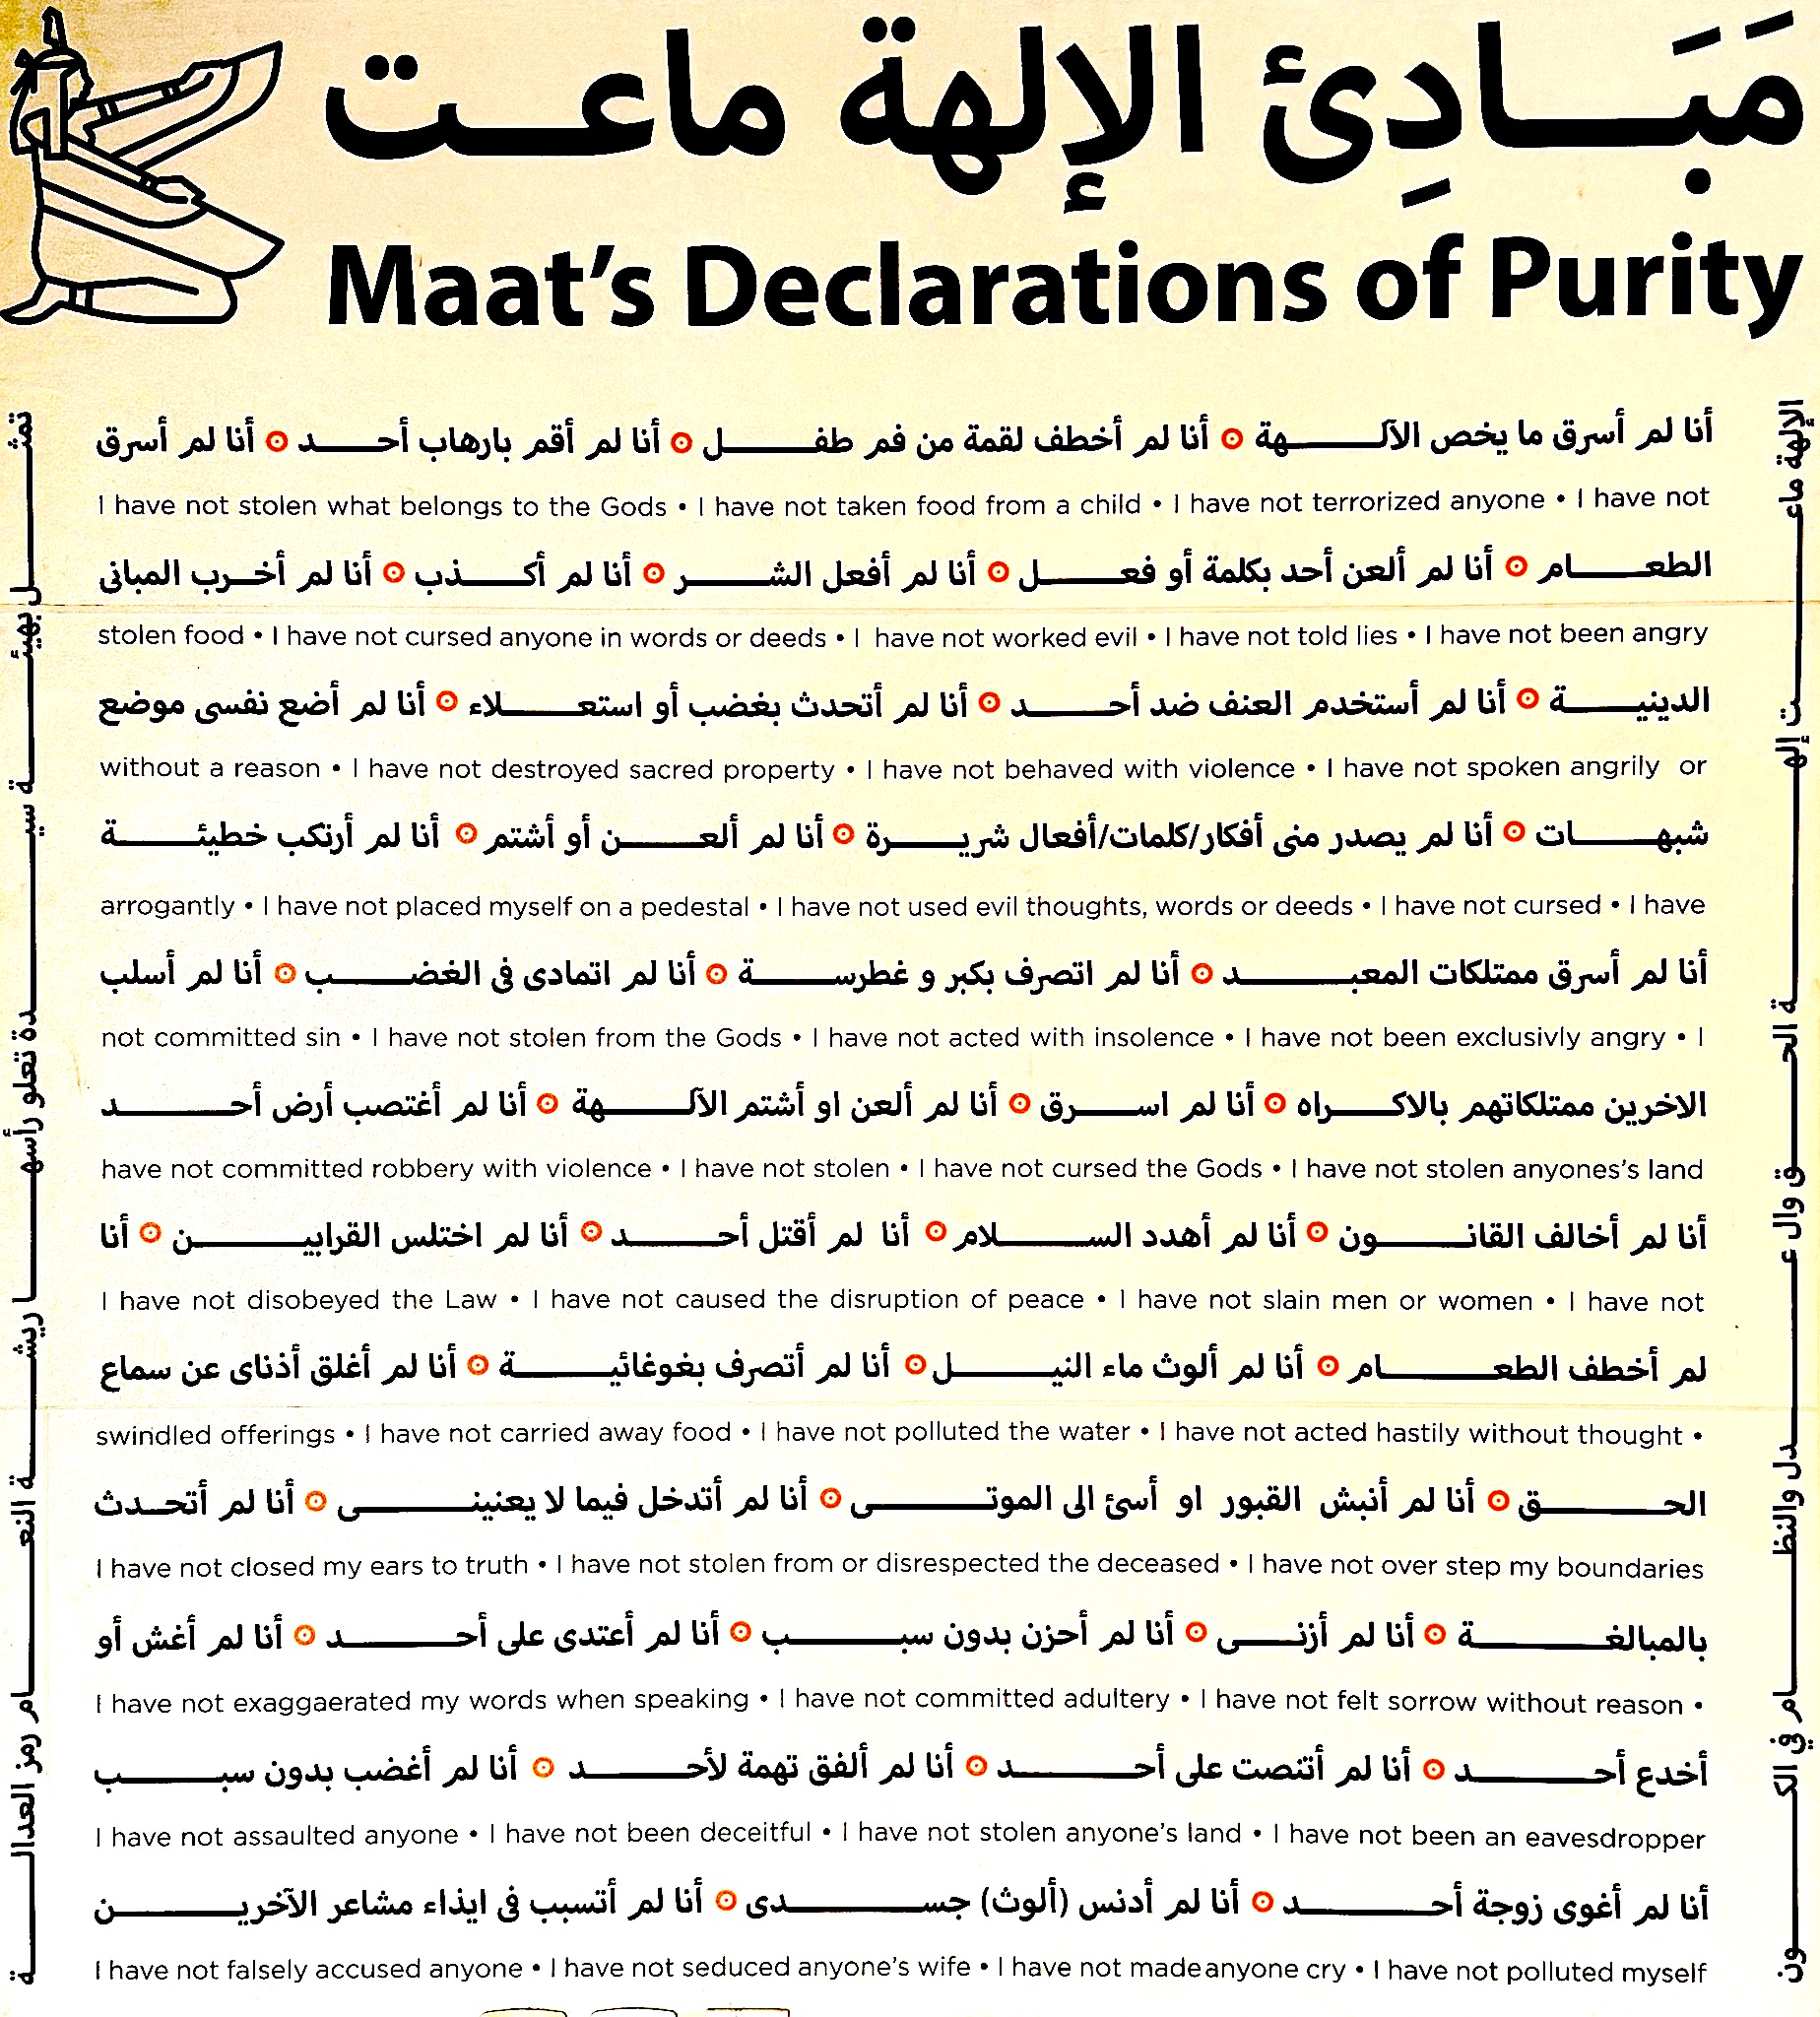 مَبَادِئ الإلهة ماعت
Maat's Declarations of Purity
أنا لم أسرق ما يخص الآلهة ⊙ أنا لم أخطف لقمة من فم طفل ⊙ أنا لم أقم بارهاب أحد ⊙ أنا لم أسرق
I have not stolen what belongs to the Gods • I have not taken food from a child • I have not terrorized anyone • I have not
الطعام ⊙ أنا لم ألعن أحد بكلمة أو فعل ⊙ أنا لم أفعل الشر ⊙ أنا لم أكذب ⊙ أنا لم أخرب المبانى
stolen food • I have not cursed anyone in words or deeds • I have not worked evil • I have not told lies • I have not been angry
الدينية ⊙ أنا لم أستخدم العنف ضد أحد ⊙ أنا لم أتحدث بغضب أو استعلاء ⊙ أنا لم أضع نفسى موضع
without a reason • I have not destroyed sacred property • I have not behaved with violence • I have not spoken angrily or
شبهات ⊙ أنا لم يصدر منى أفكار/كلمات/أفعال شريرة ⊙ أنا لم ألعن أو أشتم ⊙ أنا لم أرتكب خطيئة
arrogantly • I have not placed myself on a pedestal • I have not used evil thoughts, words or deeds • I have not cursed • I have
أنا لم أسرق ممتلكات المعبد ⊙ أنا لم اتصرف بكبر و غطرسة ⊙ أنا لم اتمادى فى الغضب ⊙ أنا لم أسلب
not committed sin • I have not stolen from the Gods • I have not acted with insolence • I have not been exclusivly angry • I
الاخرين ممتلكاتهم بالاكراه ⊙ أنا لم اسرق ⊙ أنا لم ألعن او أشتم الآلهة ⊙ أنا لم أغتصب أرض أحد
have not committed robbery with violence • I have not stolen • I have not cursed the Gods • I have not stolen anyones's land
أنا لم أخالف القانون ⊙ أنا لم أهدد السلام ⊙ أنا لم أقتل أحد ⊙ أنا لم اختلس القرابين ⊙ أنا
I have not disobeyed the Law • I have not caused the disruption of peace • I have not slain men or women • I have not
لم أخطف الطعام ⊙ أنا لم ألوث ماء النيل ⊙ أنا لم أتصرف بغوغائية ⊙ أنا لم أغلق أذناى عن سماع
swindled offerings • I have not carried away food • I have not polluted the water • I have not acted hastily without thought •
الحق ⊙ أنا لم أنبش القبور او أسئ الى الموتى ⊙ أنا لم أتدخل فيما لا يعنينى ⊙ أنا لم أتحدث
I have not closed my ears to truth • I have not stolen from or disrespected the deceased • I have not over step my boundaries
بالمبالغة ⊙ أنا لم أزنى ⊙ أنا لم أحزن بدون سبب ⊙ أنا لم أعتدى على أحد ⊙ أنا لم أغش أو
I have not exaggaerated my words when speaking • I have not committed adultery • I have not felt sorrow without reason •
أخدع أحد ⊙ أنا لم أتنصت على أحد ⊙ أنا لم ألفق تهمة لأحد ⊙ أنا لم أغضب بدون سبب
I have not assaulted anyone • I have not been deceitful • I have not stolen anyone's land • I have not been an eavesdropper
أنا لم أغوى زوجة أحد ⊙ أنا لم أدنس (ألوث) جسدى ⊙ أنا لم أتسبب فى ايذاء مشاعر الآخرين
I have not falsely accused anyone • I have not seduced anyone's wife • I have not made anyone cry • I have not polluted myself
الإلهة ماعت إلهة الحق والعدل والنظام في الكون
تمثل بهيئة سيدة تعلو رأسها ريشة النعام رمز العدالة